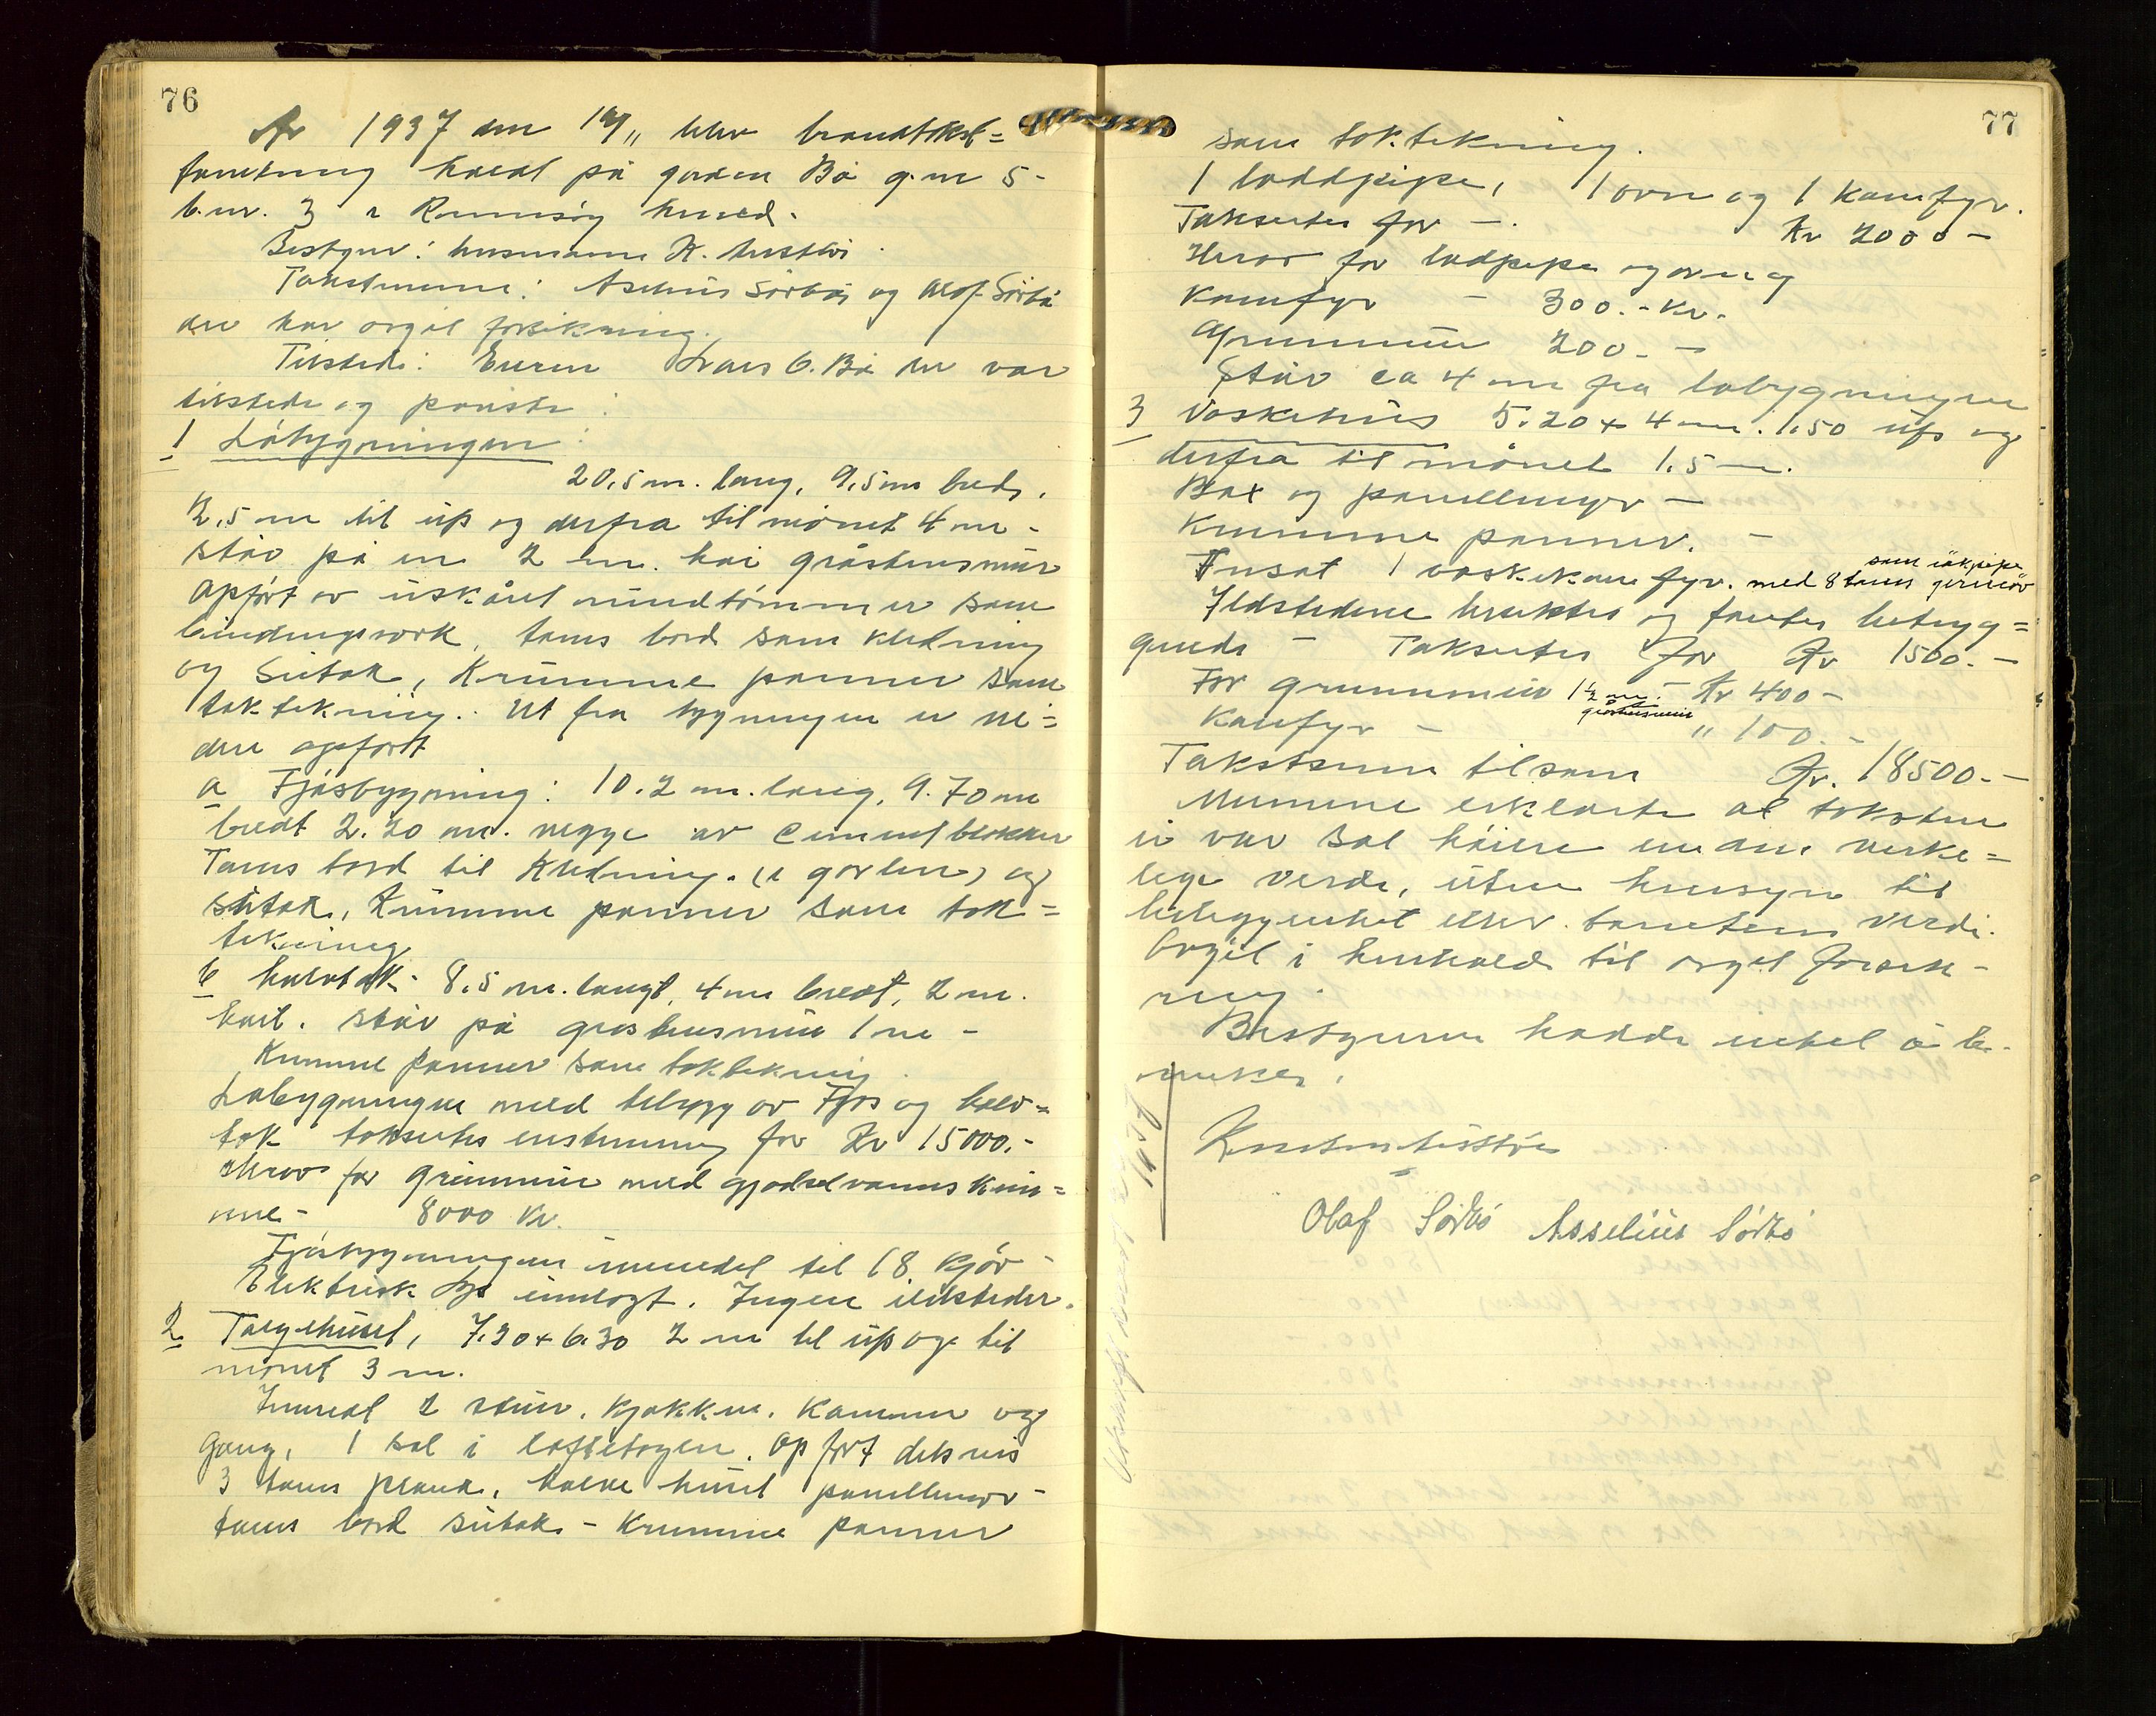 76
År 1937 den 19/11 blev brandtakst=
forretning holdt på garden Bø g.nr 5
b.nr. 3 i Rennesøy herred.
Bestyrer: lensmann K.
Takstmenn: Asselius Sørbø og Olaf Sørbø
der har avgit forsikring.
Tilstede: Eieren Lars O. Bø der var
tilstede og påviste:
1 Løbygningen:
20,5 m. lang, 9,5 m bred,
2,5 m til ups og derfra til mønet 4 m -
står på en 2 m. høi gråstensmur
opført av uskåret rundtømmer som
bindingsverk, toms bord som kledning
og sutak, Krumme panner som
taktekning. Ut fra bygningen er vi=
dere opført
a Fjøsbygning: 10.2 m. lang, 9.70 m
bredt 2.20 m. vegge av cementblokker
Toms bord til kledning. (i gavlen) og
sutak, Krumme panner som tak=
tekning
b halvtak 8.5 m. langt, 4 m bredt, 2 m.
høit. står på gråstensmur 1 m -
Krumme panner som taktekning.
Løbygningen med tilbygg av Fjøs og halv=
tak takseres enstemmig for Kr 15000.-
Herav for grunnmur med gjødselvannskum=
me - 8000 Kr.
Fjøsbygningen innredet til 18 kjør -
Elektrisk lys innlagt. Ingen ildsteder.
2 Torvehuset, 7.30 x 6.30 2 m til ups og til
mønet 3 m.
Innredt 2 stuer, kjøkken, kammer og
gang, 1 sal i loftetagen. Opført delsvis
3 toms plank, halve huset panelinger -
toms bord sutak - Krumme panner
77
som taktekning.
1 loddpipe, 1 ovn og 1 kamfyr.
Takseres for - Kr 2000 -
Herav for lodpipe og ovn og
Kamfyr - 300.- Kr.
Grunnmur 200.-
Står ca 4 m fra løbygningen
3 Vaskehus 5.20 x 4 m. 1.50 ups og
derfra til mønet 1,5 m.
og panelinger -
Krumme panner. -
Innsat 1 vaskekamfyr. med 8 toms jernrør
som røkpipe
Ildstedene bruktes og fantes betryg=
gende - Takseres for Kr 1500.-
For grunnmur 1½ m. - Kr 400 -
gråstensmur
Kamfyr - " 100.-
Takstsum tilsam Kr. 18500.-
Mennene erklærte at taksten
ei var sat høiere enn den verke=
lige verdi, uten hensyn til
beliggenhet eller tomtens verdi.
Avgit i henhold til avgit forsik-
ring.
Bestyreren hadde intet å be-
merke.
Olaf Sørbø Asselius Sørbø
1937